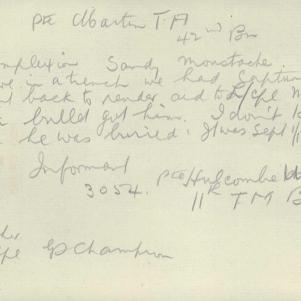 Pte Martin T.A
42nd Bn
mplexion Sandy Moustache
in a trench we had Captur
back to render aid to L/Cpl
bullet got him. I don't k
he was buried. It was Sept
Informant
3054. Pte Hulcombe
11th T M B
Champion